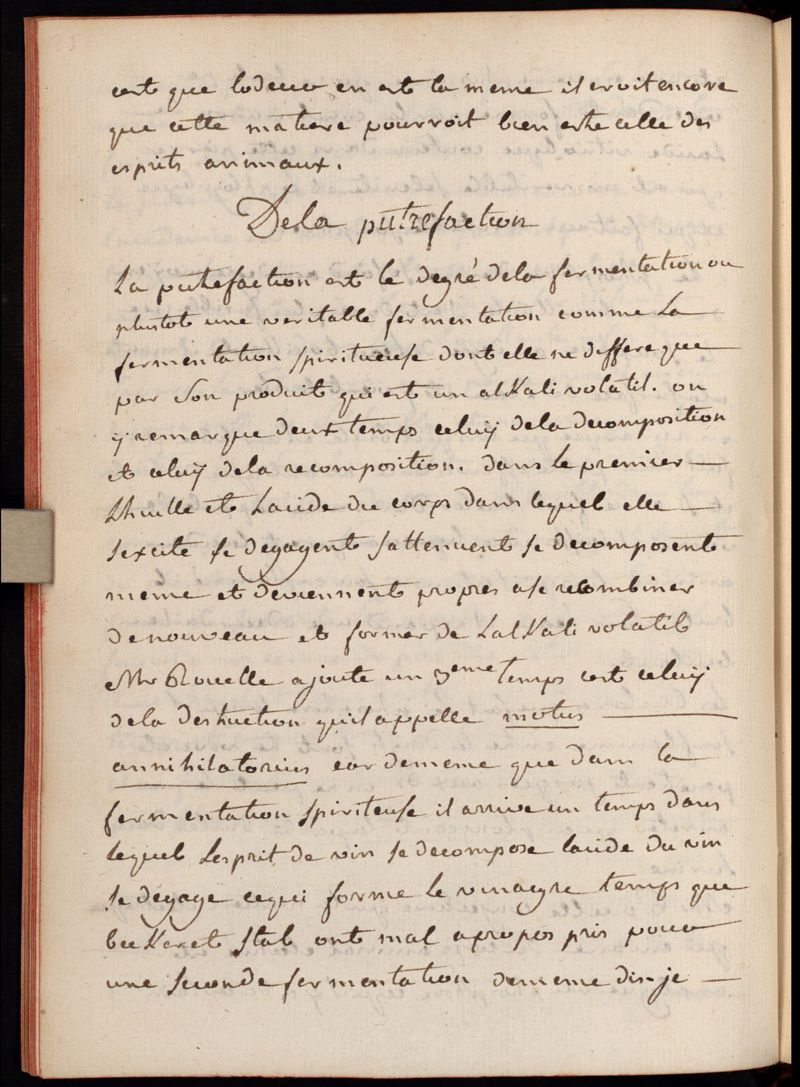 cest que lodeur en est la meme il croit encore
que cette matiere pourroit bien estre celle des
esprits animaux.
De la putrefaction
La putrefaction est le degré dela fermentation ou
plustot une veritable fermentation comme La
fermentation spiritueuse dont elle ne differe que
par son produit qui est un alKali volatil. on
y remarque deux temps celuy dela decomposition
et celuy dela recomposition. dans le premier
Lhuille et Lacide du corps dans lequel elle
sexcite se degagent sattenuent se decomposent
meme et deviennent propres ase recombiner
denouveau et former de LalKali volatil
Mr Rouelle ajoute un 3eme temps cest celuy
dela destruction quil appelle motus
annihilatorius car dememe que dans la
fermentation spiriteuse il arrive un temps dans
lequel Lesprit de vin se decompose lacide du vin
se degage cequi forme le vinaigre temps que
becKer et Stal ont mal apropos pris pour
une seconde fermentation dememe disje